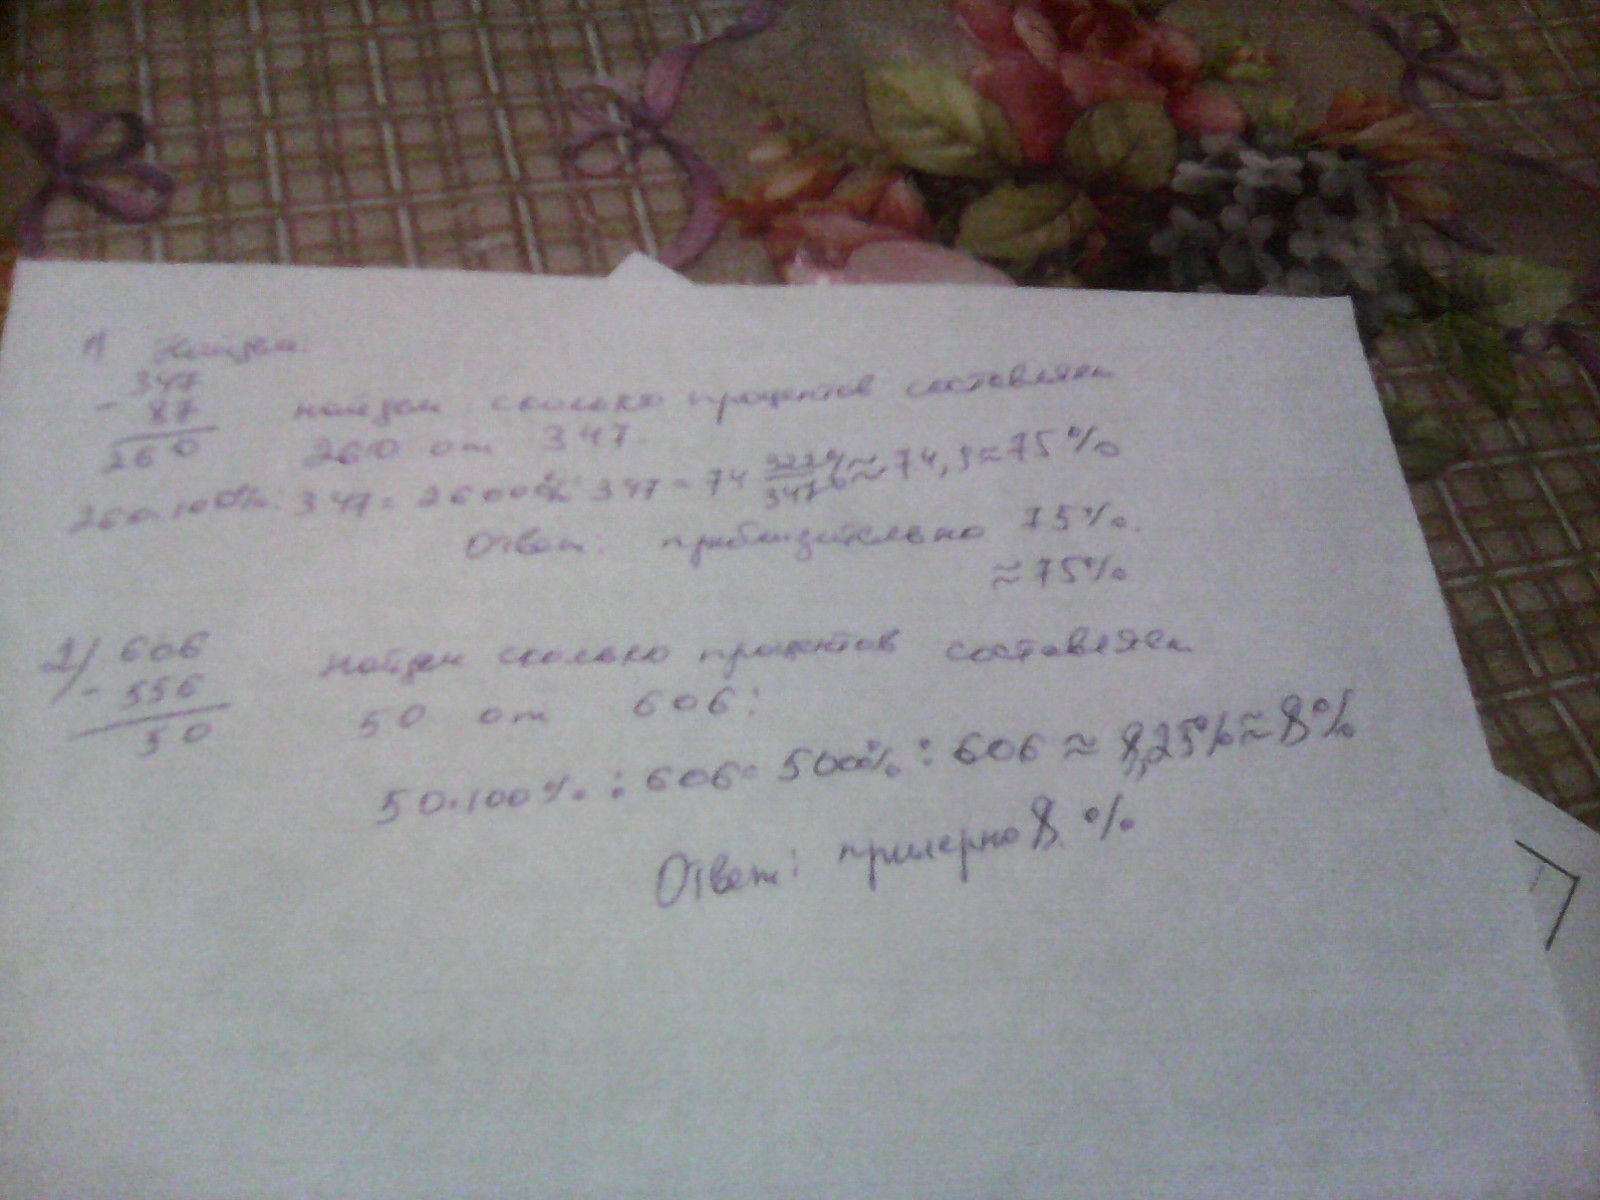 1) Найдем:
347
- 87
260
найдем сколько процентов составляет
260 от 347.
260·100%: 347= 26000%: 347 = 74 322/347 % ≈ 74,9 ≈ 75%
Ответ: приблизительно 75%.
≈ 75%
2) 606
- 556
50
найдем сколько процентов составляет
50 от 606:
50·100% : 606= 5000% : 606 ≈ 8,25% ≈ 8%
Ответ: примерно 8 %